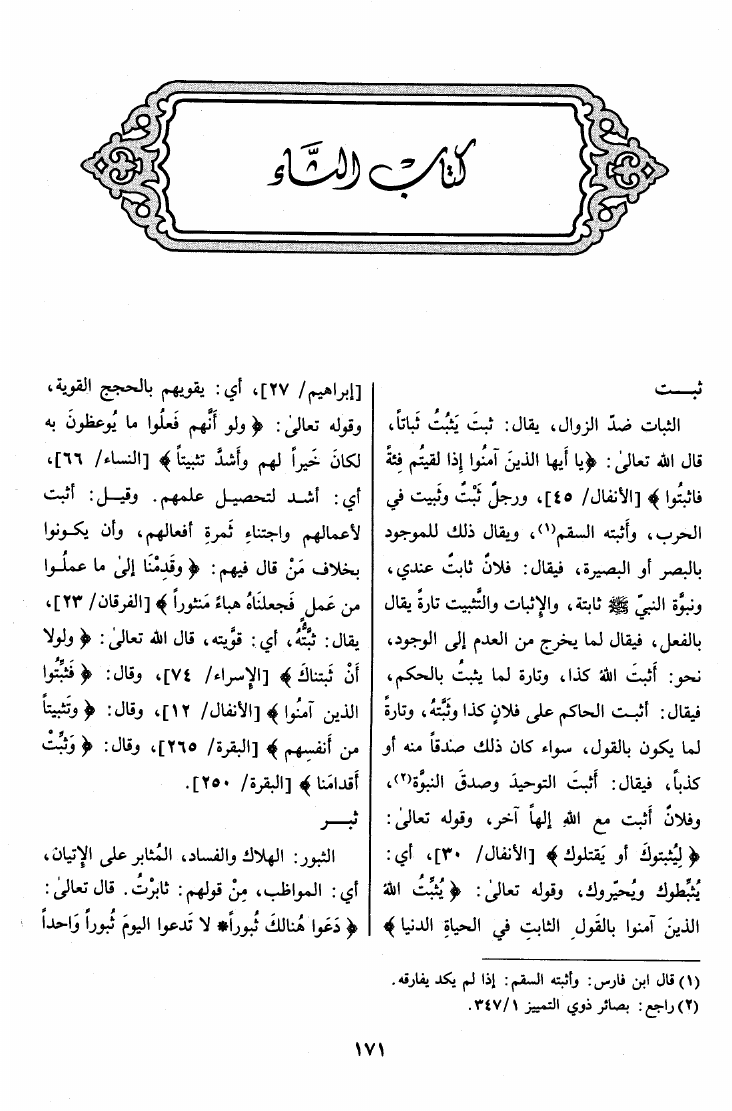 كتاب الثَّاء
ثبـــت
الثبات ضدّ الزوال، يقال: ثبتَ يَثبُتُ ثَباتاً،
قال الله تعالىٰ: ﴿يا أيها الذينَ آمنُوا إذا لقيتُم فِئةً
فاثبتُوا﴾ [الأنفال/ ٤٥]، ورجلٌ ثَبْتٌ وثَبيت في
الحرب، وأثبته السقم(١)، ويقال ذلك للموجود
بالبصر أو البصيرة، فيقال: فلانٌ ثابتٌ عندي،
ونبوَّة النبيّ ﷺ ثابتة، والإثبات والتَّثبيت تارةً يقال
بالفعل، فيقال لما يخرج من العدم إلى الوجود،
نحو: أثبتَ اللهُ كذا، وتارة لما يثبتُ بالحكم،
فيقال: أثبـت الحاكم على فلانٍ كذا وثَبَّتهُ، وتارةً
لما يكون بالقول، سواء كان ذلك صدقاً منه أو
كذباً، فيقال: أثبتَ التوحيدَ وصدقَ النبوَّة(٢)،
وفلانٌ أثبت مع اللهِ إلهاً آخر، وقوله تعالىٰ:
﴿لِيُثبتوكَ أو يَقتلوكَ﴾ [الأنفال/ ٣٠]، أي:
يُثبِّطوك ويُحيّروك، وقوله تعالىٰ: ﴿يُثبِّتُ اللهُ
الذينَ آمنوا بالقولِ الثابتِ في الحياةِ الدنيا﴾
[إبراهيم/ ٢٧]، أي: يقويهم بالحجج القوية،
وقوله تعالىٰ: ﴿ولو أنَّهم فَعلُوا ما يُوعظونَ به
لكانَ خَيراً لهم وأشدَّ تثبيتاً﴾ [النساء/ ٦٦]،
أي: أشـد لتحصيـل علمهم. وقيـل: أثبت
لأعمالهم واجتناءِ ثَمرةِ أفعالهم، وأن يكـونوا
بخلاف مَنْ قال فيهم: ﴿وقَدِمْنَا إلىٰ ما عملُـوا
من عَملٍ فَجعلنَاهُ هباءً مَنثوراً﴾ [الفرقان/ ٢٣]،
يقال: ثبَّتُّهُ، أي: قوَّيته، قال الله تعالىٰ: ﴿ولولا
أنْ ثَبتناكَ﴾ [الإسراء/ ٧٤]، وقال: ﴿فَثَبِّتُوا
الذين آمنُوا﴾ [الأنفال/ ١٢]، وقال: ﴿وتَثبيتاً
من أنفسِهم﴾ [البقرة/ ٢٦٥]، وقال: ﴿وَثَبِّتْ
أقدامَنا﴾ [البقرة/ ٢٥٠].
ثبـــر
الثبور: الهلاك والفساد، المُثابر على الإتيان،
أي: المواظب، مِنْ قولهم: ثابرْتُ. قال تعالىٰ:
﴿دَعَوا هُنالكَ ثُبوراً* لا تَدعوا اليومَ ثُبوراً وَاحداً
(١) قال ابن فارس: وأثبته السقم: إذا لم يكد يفارقه.
(٢) راجع: بصائر ذوي التمييز ٣٤٧/١.
١٧١